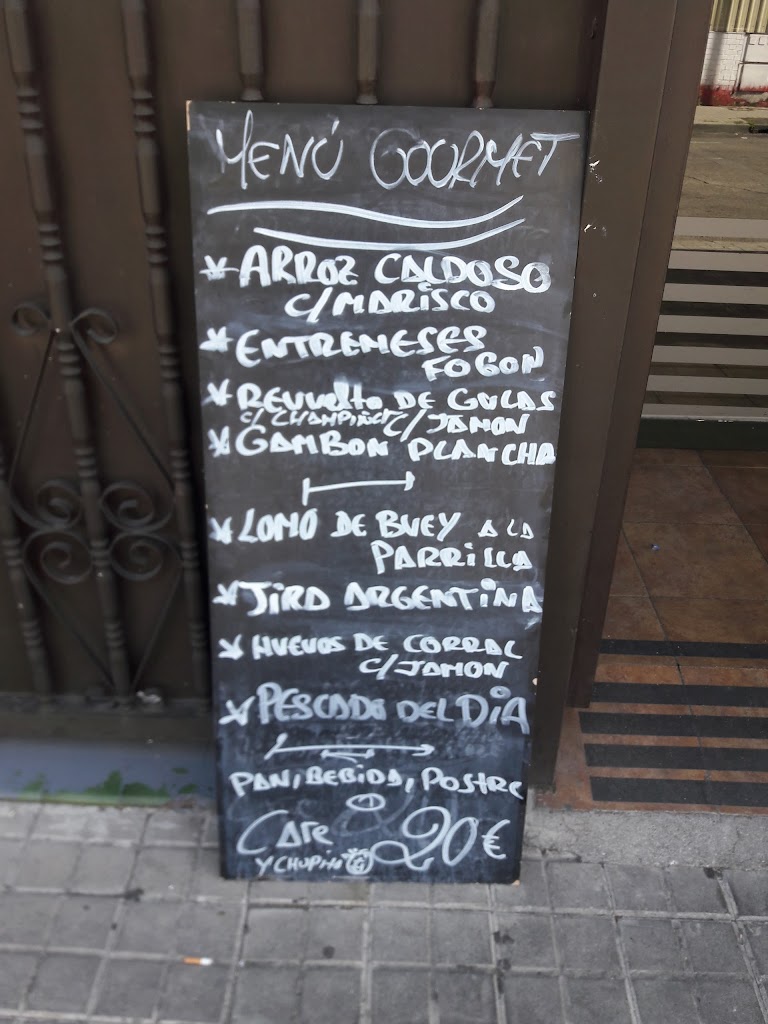 MENÚ GOURMET
* ARROZ CALDOSO
C/MARISCO
* ENTREMESES
FOGON
* REVUELTO DE GULAS
C/CHAMPIÑON C/JAMON
* GAMBON PLANCHA
* LOMO DE BUEY A LA
PARRILLA
* TIRA ARGENTINA
* HUEVOS DE CORRAL
C/JAMON
* PESCADO DEL DIA
PAN, BEBIDA, POSTRE
CAFE
Y CHUPITO
20€